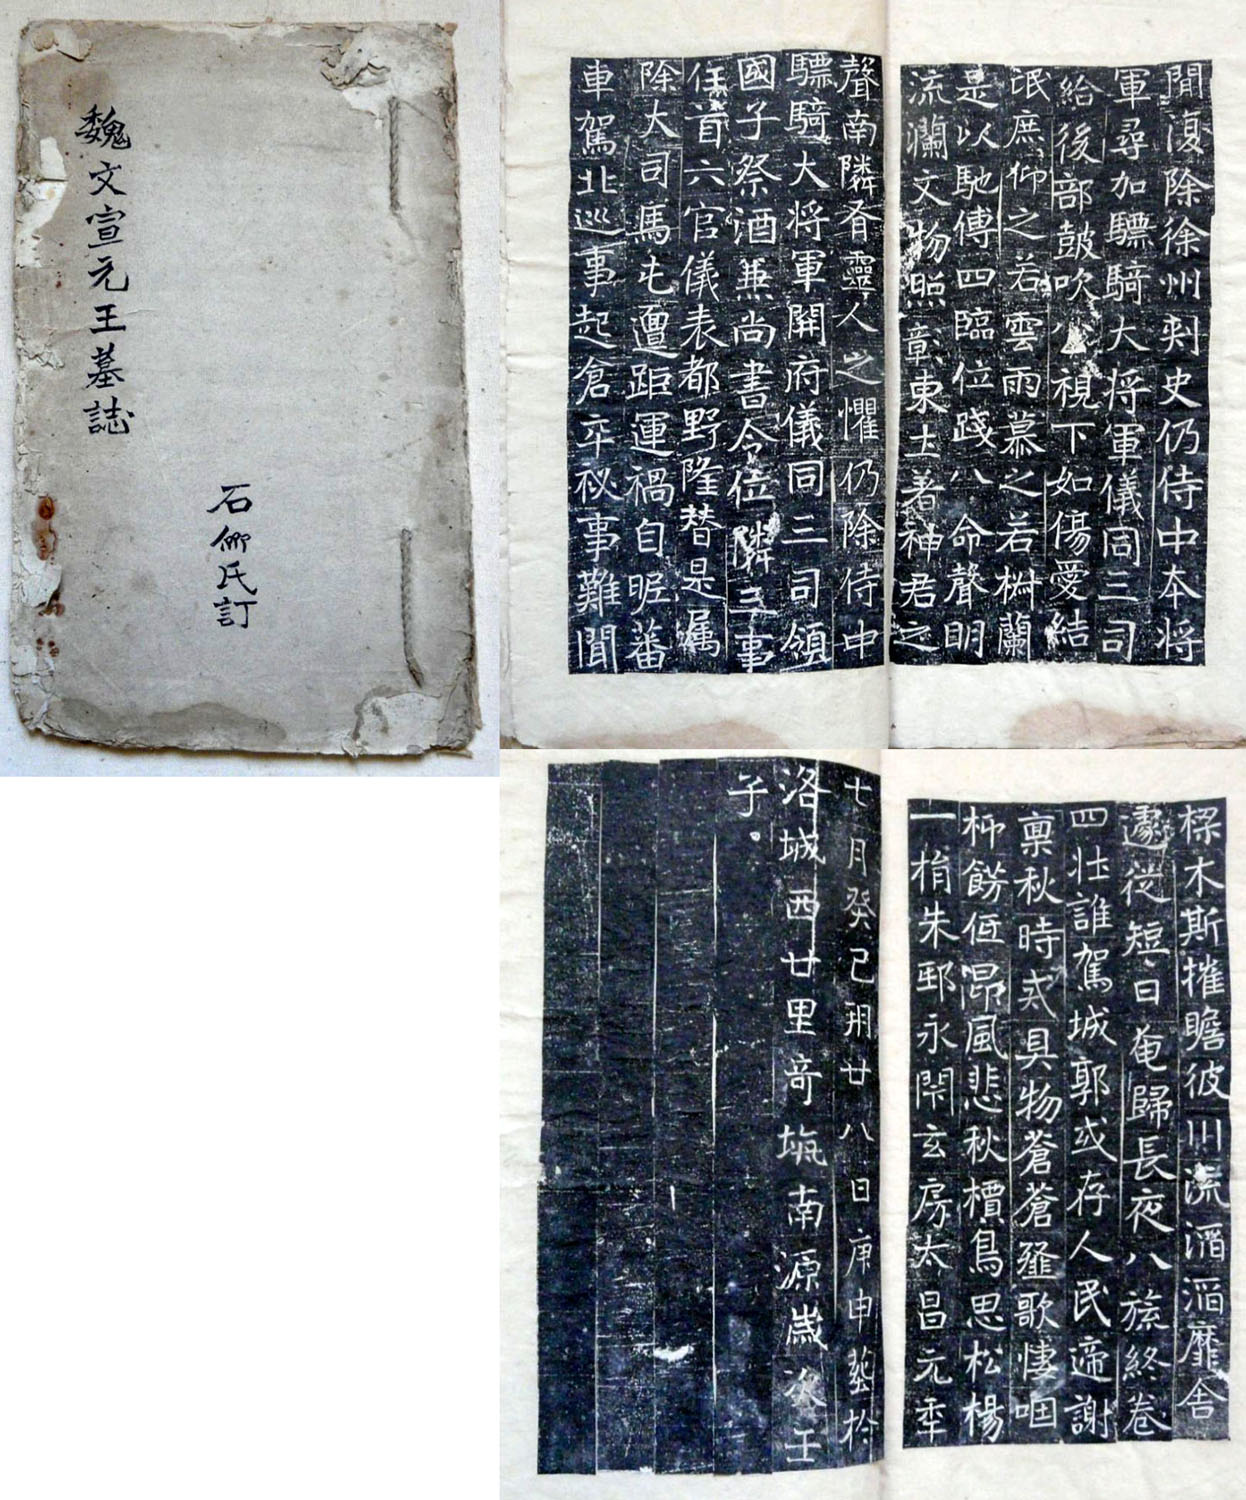 魏文宣元王墓誌
石衎氏訂
間復除徐州刺史仍侍中本将
軍尋加驃騎大将軍儀同三司
給後部鼓吹公視下如傷愛結
氓庶仰之若雲雨慕之若椒蘭
是以馳傳四臨位踐八命聲明
流瀾文物照彰東土著神君之
聲南隣有靈人之懼仍除侍中
驃騎大将軍開府儀同三司領
國子祭酒兼尚書令位隣三事
任首六官儀表都野隆替是属
除大司馬屯邅距運禍自昵蕃
車駕北巡事起倉卒袐事難聞
樑木斯摧瞻彼川流滔滔靡舍
遽從短日奄歸長夜八旒終卷
四壮誰駕城郭或存人民遞謝
稟秋時或具物蒼蒼薤歌悽咽
柳餝低昂風悲秋檟鳥思松楊
一捐朱邸永閇玄房太昌元年
七月癸巳朔廿八日庚申塟扵
洛城西廿里竒坑南源嵗次壬
子。